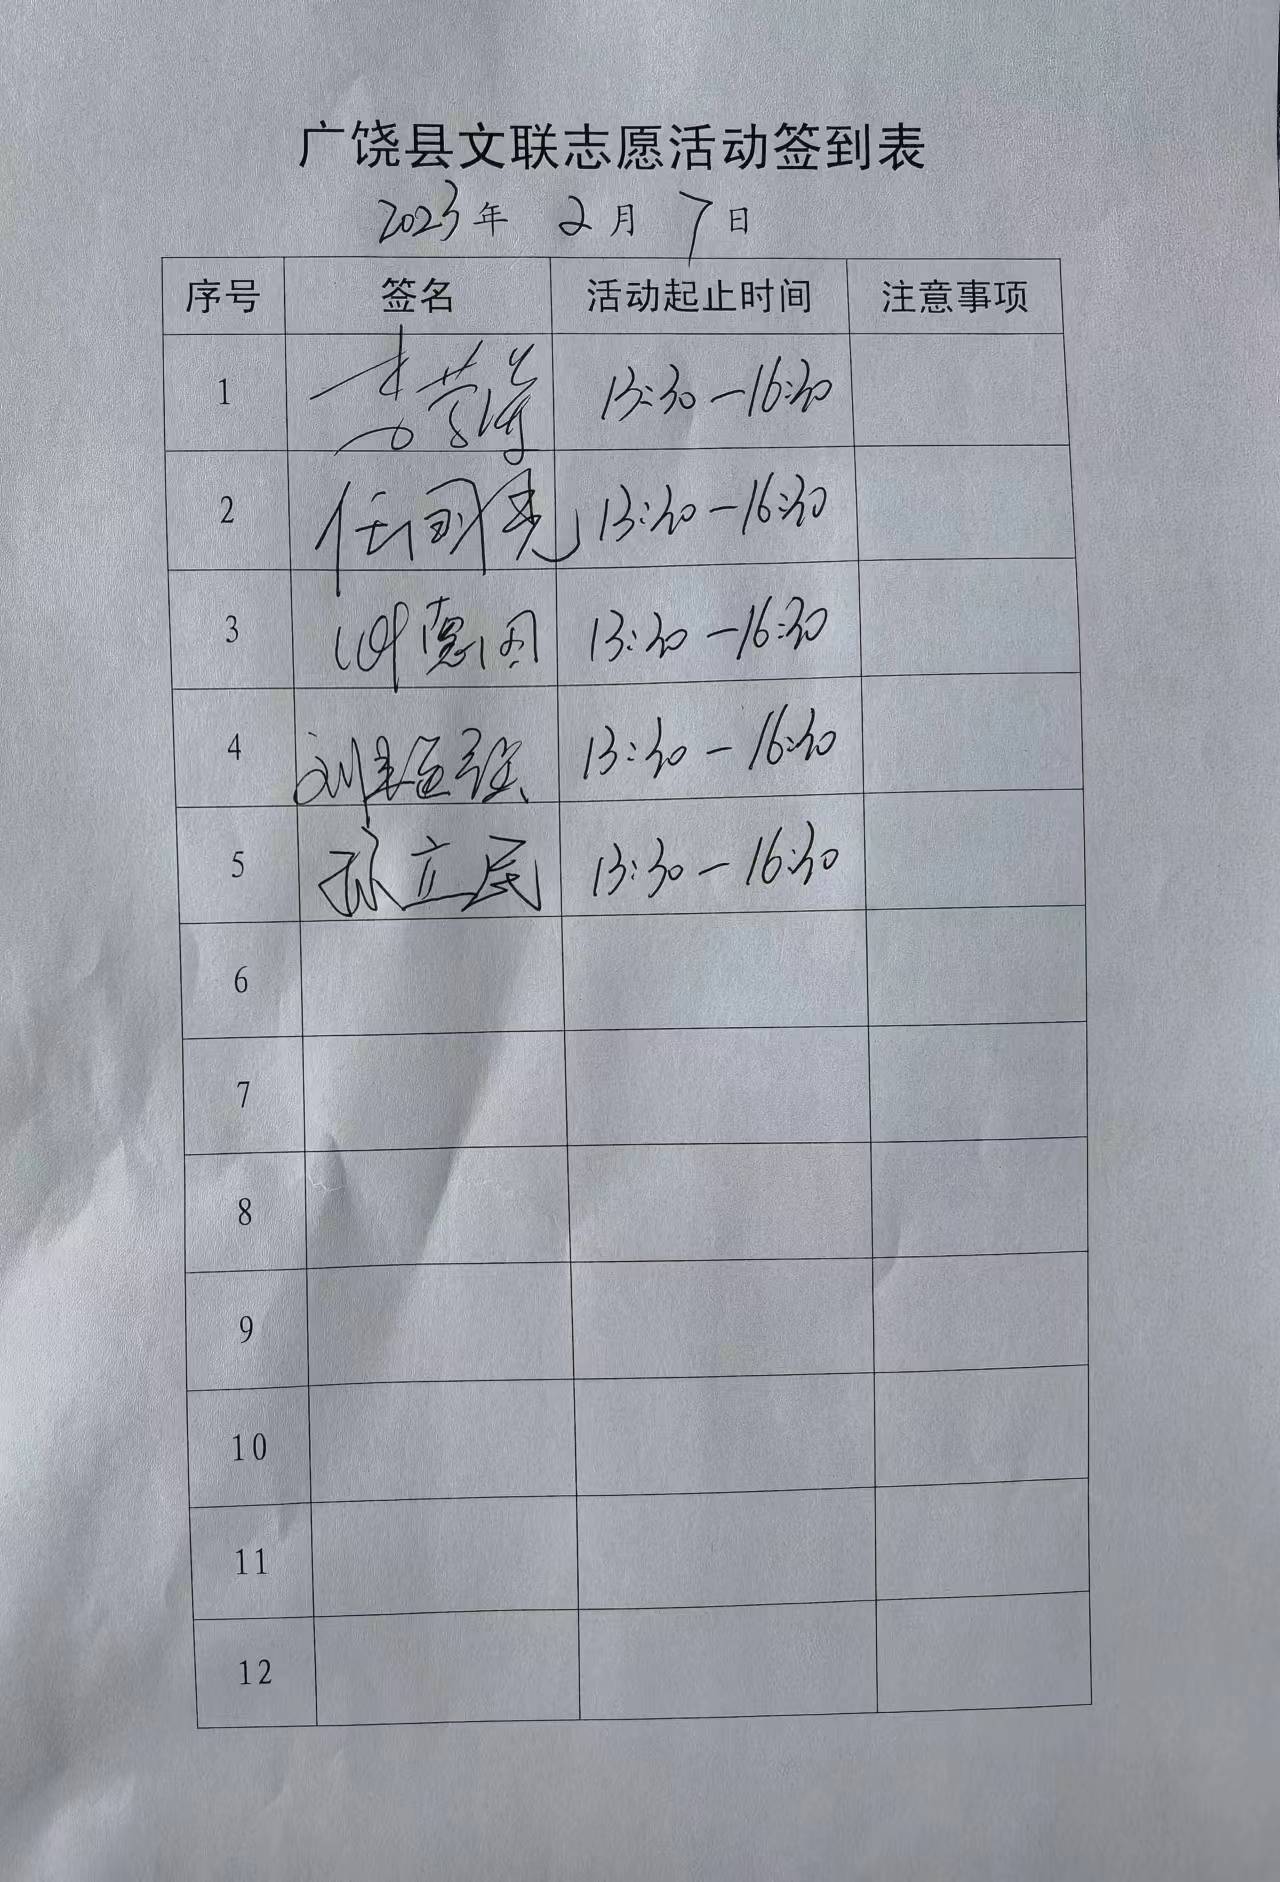 广饶县文联志愿活动签到表
2023年 2月 7日
序号 签名 活动起止时间 注意事项
1 13:30-16:30
2 任国亮 13:30-16:30
3 13:30-16:30
4 13:30-16:30
5 孙立民 13:30-16:30
6
7
8
9
10
11
12